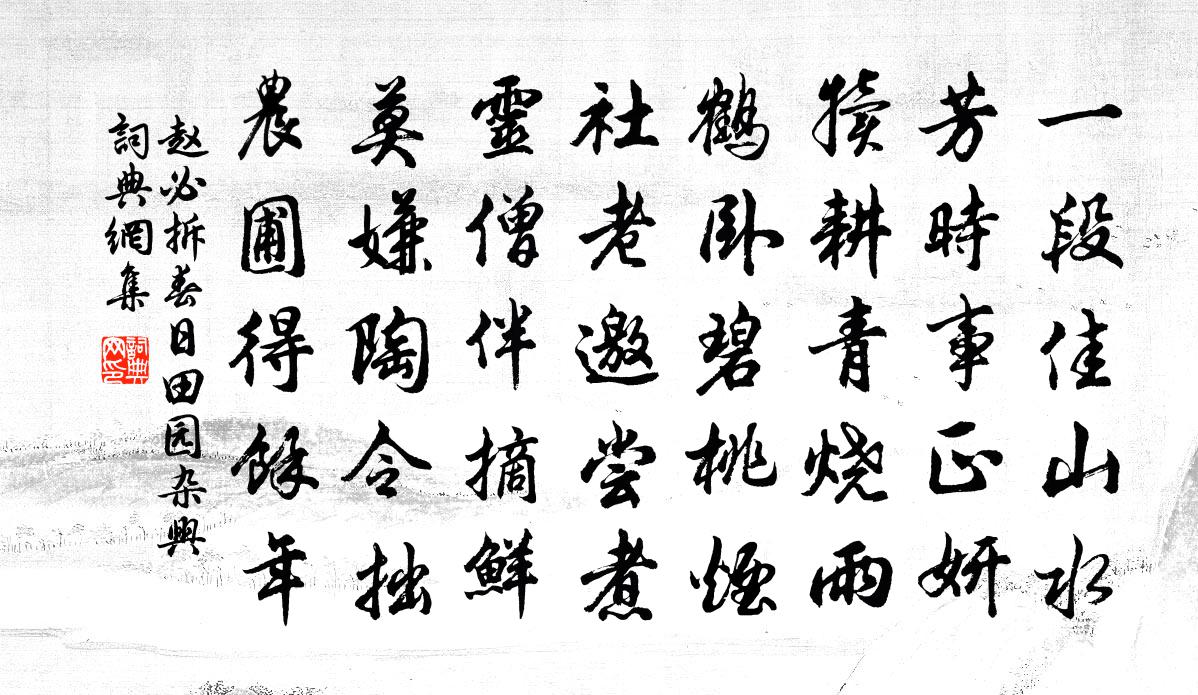 一段佳山水
芳時事正妍
犢耕青烧雨
鶴卧碧桃煙
社老邀尝煮
靈僧伴摘鮮
莫嫌陶令拙
農圃得餘年
赵必拆春日田园杂興
詞典網集
詞典网印